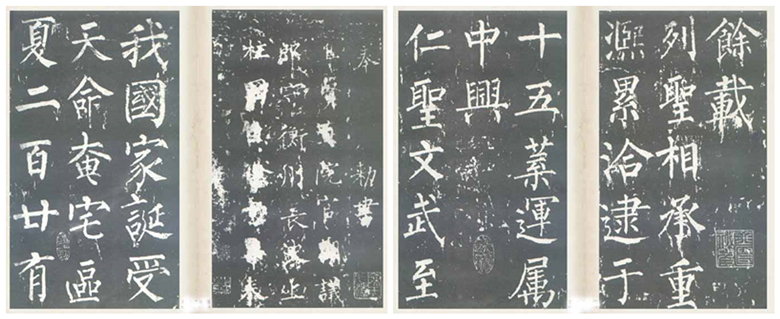 奉勅書
院官朝議
郎守衡州長史上
柱國
我國家誕受
天命奄宅區
夏二百廿有
餘載
列聖相承重
熈累洽逮于
十五葉運属
中興
仁聖文武至